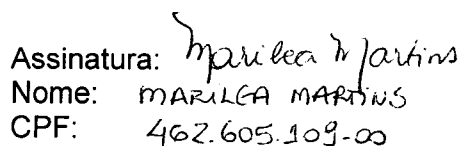 Assinatura: Marilea Martins
Nome: MARILEA MARTINS
CPF: 462.605.109-00